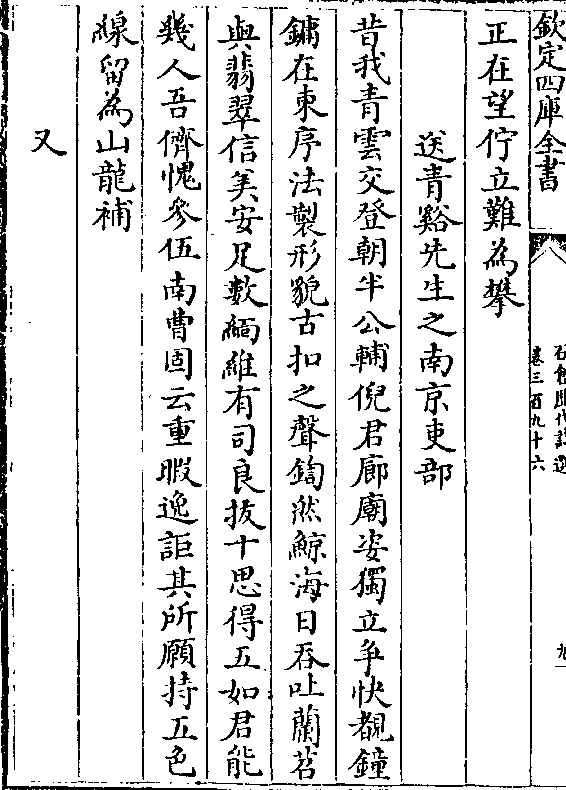 欽定四庫全書
石倉歷代詩選
卷三百九十六
九
正在望佇立難為攀
送青谿先生之南京吏部
昔我青雲交登朝半公輔倪君廊廟姿獨立爭快覩鐘
鏞在東序法製形貌古扣之聲鍧然鯨海日吞吐蘭苕
與翡翠信美安足數緬維有司良拔十思得五如君能
幾人吾儕愧參伍南曹固云重暇逸詎其所願持五色
線留為山龍補
又